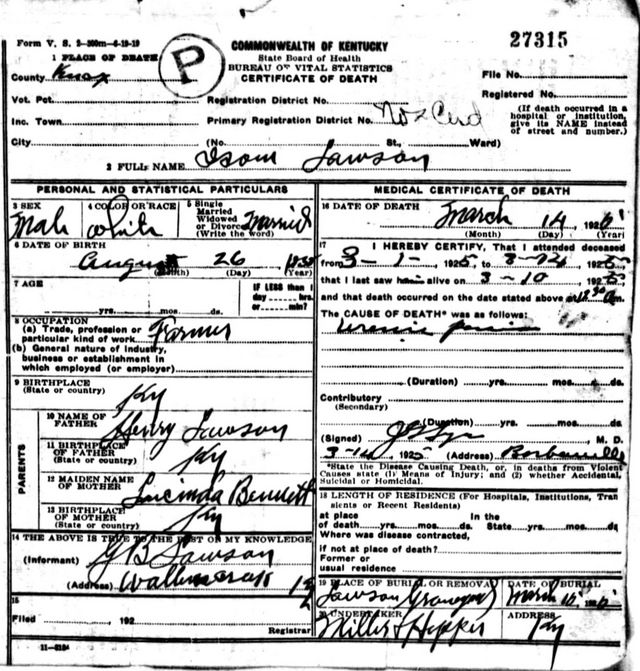 Form V. S. 2-300m-6-19-19
27315
1 PLACE OF DEATH
P
COMMONWEALTH OF KENTUCKY
State Board of Health
BUREAU OF VITAL STATISTICS
CERTIFICATE OF DEATH
County Knox
File No.
Registered No.
Vot. Pct.
Registration District No.
(If death occurred in a hospital or institution, give its NAME instead of street and number.)
Inc. Town
Primary Registration District No.
City
(No. St., Ward)
2 FULL NAME Isom Lawson
PERSONAL AND STATISTICAL PARTICULARS
3 SEX Male
4 COLOR OR RACE White
5 Single Married Widowed or Divorced (Write the word) Married
6 DATE OF BIRTH
August 26
(Month) (Day) (Year)
7 AGE
yrs. mos. ds.
IF LESS than 1 day hrs. or min?
8 OCCUPATION
(a) Trade, profession or particular kind of work Farmer
(b) General nature of industry, business or establishment in which employed (or employer)
9 BIRTHPLACE
(State or country) Ky
PARENTS
10 NAME OF FATHER Henry Lawson
11 BIRTHPLACE OF FATHER (State or country) Ky
12 MAIDEN NAME OF MOTHER Lucinda
13 BIRTHPLACE OF MOTHER (State or country) Ky
14 THE ABOVE IS TRUE TO THE BEST OF MY KNOWLEDGE
(Informant) G B Lawson
(Address)
15
Filed , 192
Registrar
11-8184
MEDICAL CERTIFICATE OF DEATH
16 DATE OF DEATH
March 14, 192
(Month) (Day) (Year)
17 I HEREBY CERTIFY, That I attended deceased
from 3-1-1925, to 3-14, 192
that I last saw him alive on 3-10, 192
and that death occurred on the date stated above at
The CAUSE OF DEATH* was as follows:
(Duration) yrs. mos. ds.
Contributory
(Secondary)
(Duration) yrs. mos. ds.
(Signed) M. D.
3-14, 1925 (Address) Barbourville
*State the Disease Causing Death, or, in deaths from Violent Causes state (1) Means of Injury; and (2) whether Accidental, Suicidal or Homicidal.
18 LENGTH OF RESIDENCE (For Hospitals, Institutions, Transients or Recent Residents)
at place of death yrs. mos. ds. In the State yrs. mos. ds.
Where was disease contracted,
if not at place of death?
Former or usual residence
19 PLACE OF BURIAL OR REMOVAL Lawson Graveyard
DATE OF BURIAL March
20 UNDERTAKER Miller & Hopper
ADDRESS Ky